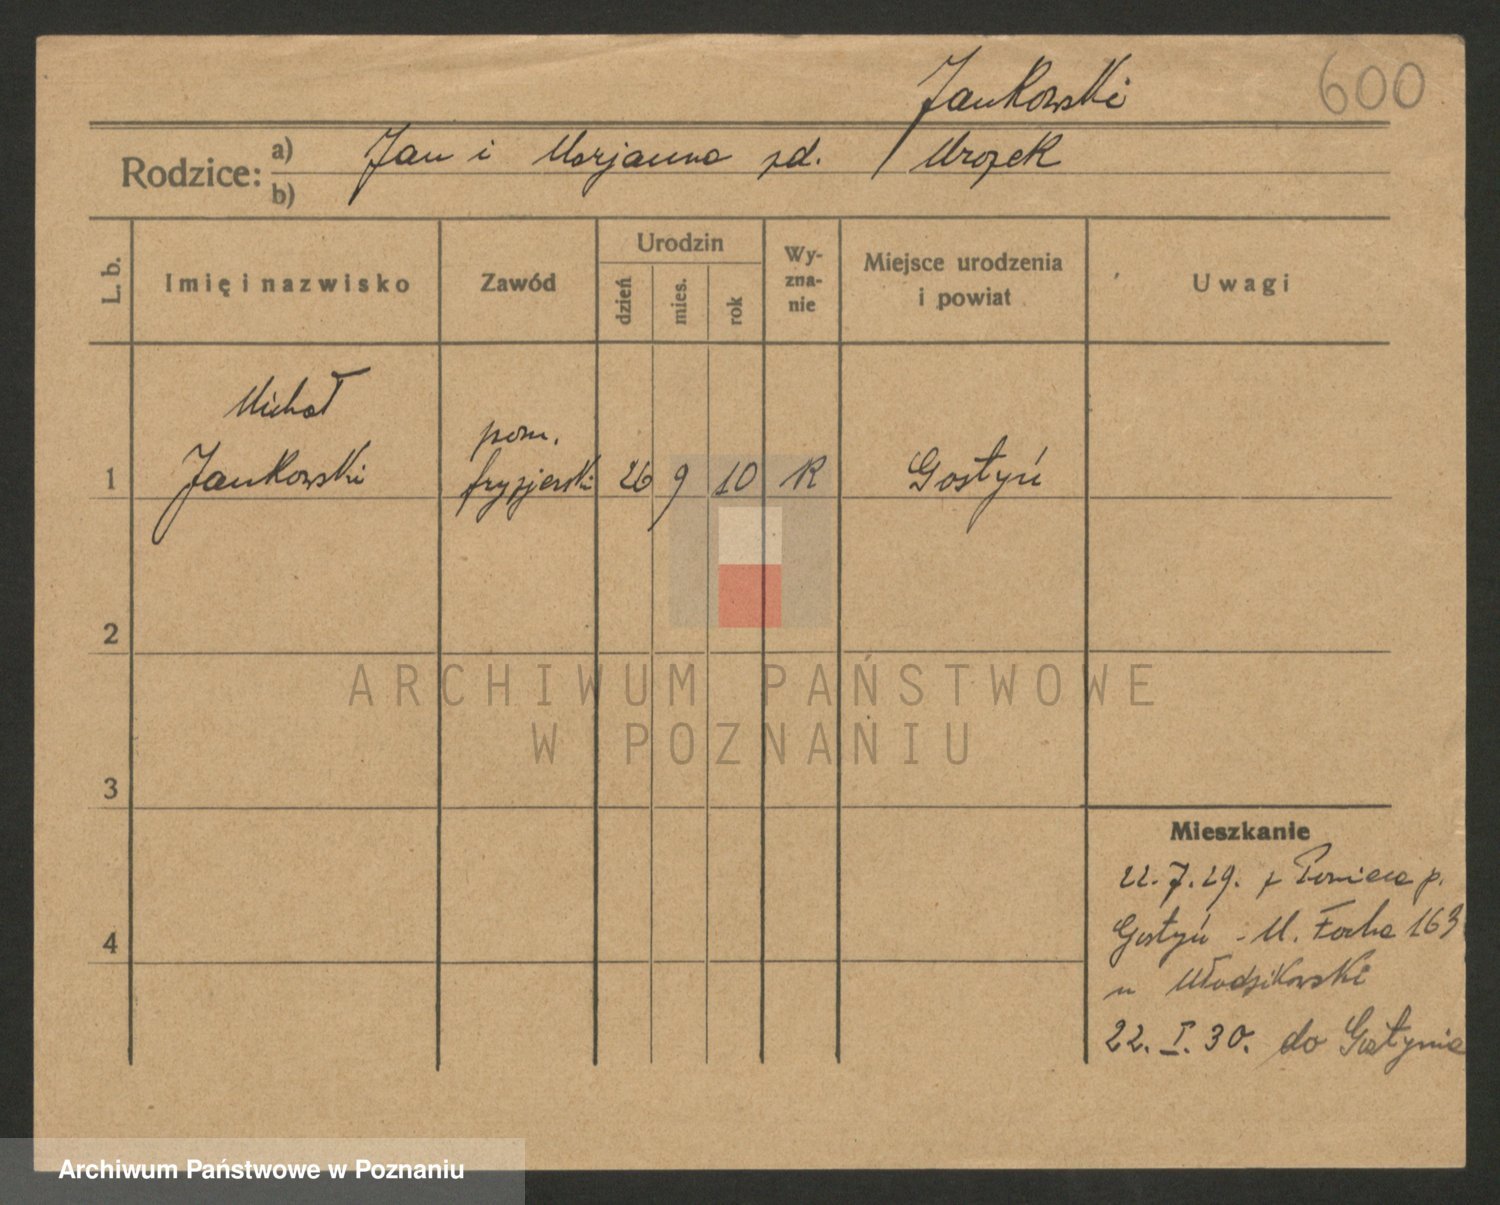 Jankowski
600
Rodzice: a) Jan i Marjanna zd. Mrozek
b)
L. b.
Imię i nazwisko
Zawód
Urodzin
dzień
mies.
rok
Wy-
zna-
nie
Miejsce urodzenia
i powiat
Uwagi
Michał
Jankowski
pom.
fryzjerski
1
26
9
10
K
Gostyń
2
3
4
Mieszkanie
22.7.29. z Ponieca p.
Gostyń - M. Focha 163
u Włodzikowski
22. I. 30. do Gostynia
ARCHIWUM PAŃSTWOWE
W POZNANIU
Archiwum Państwowe w Poznaniu